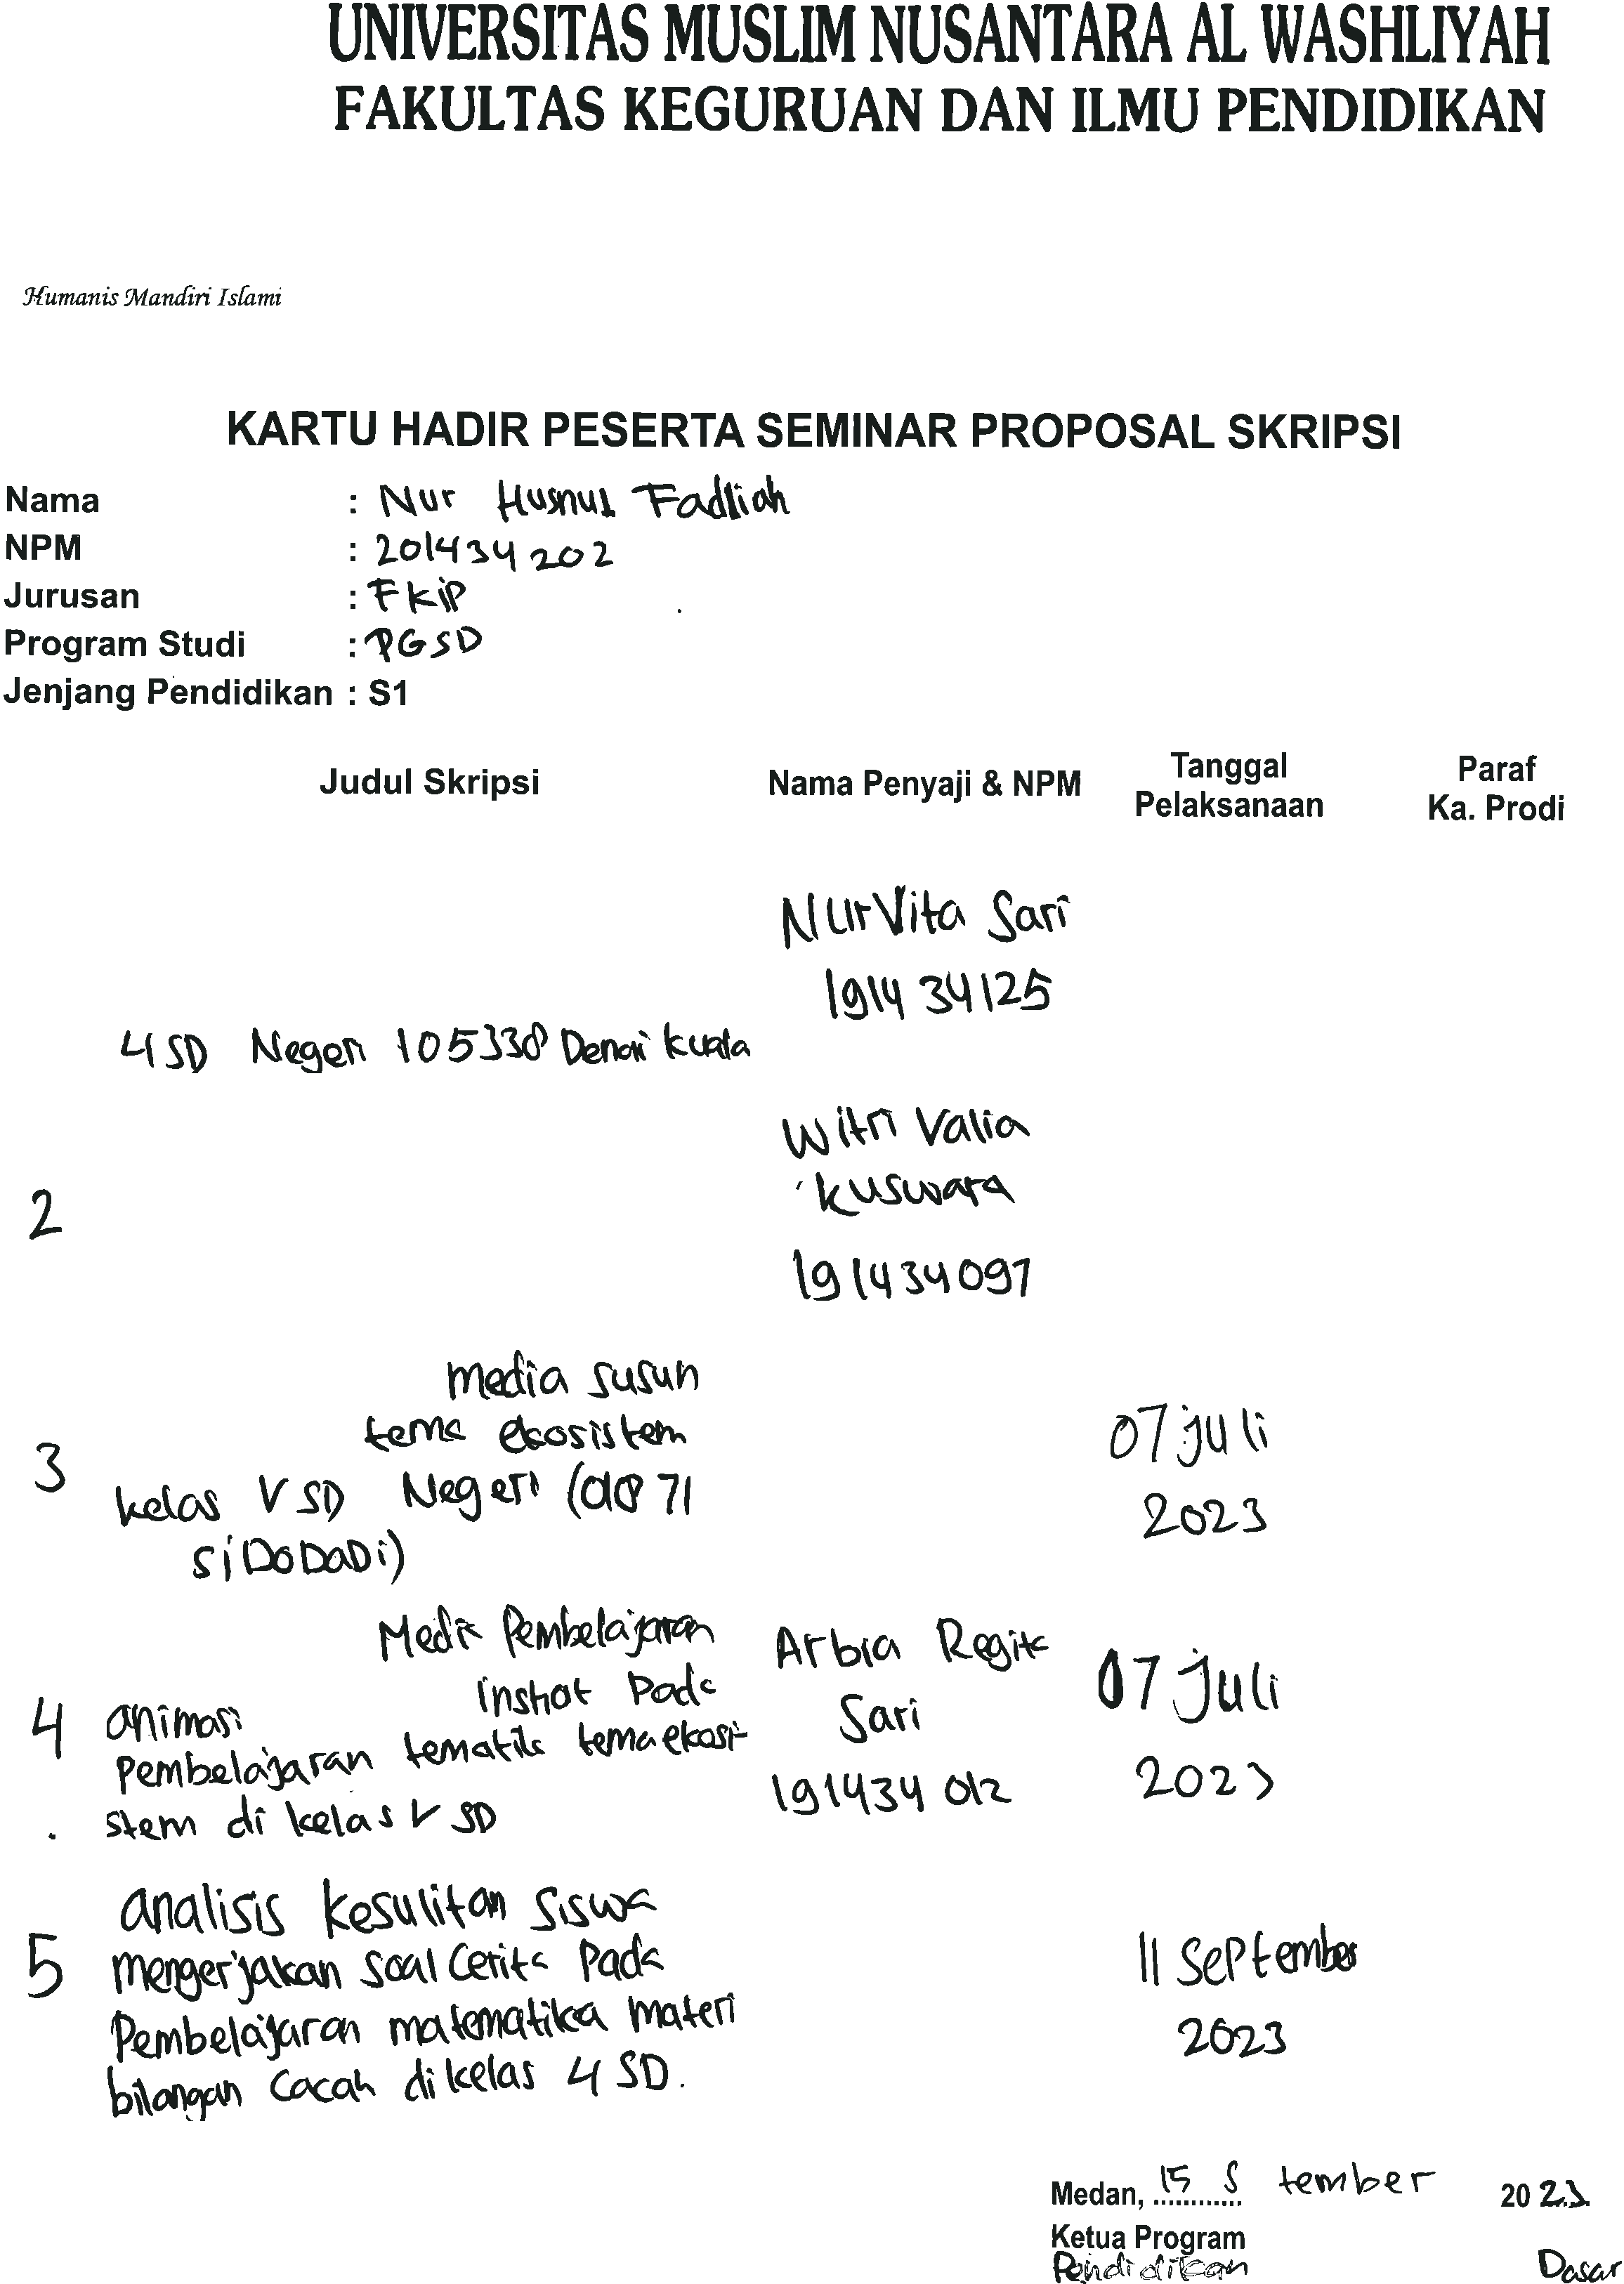 UNIVERSITAS MUSLIM NUSANTARA AL WASHLIYAH
FAKULTAS KEGURUAN DAN ILMU PENDIDIKAN
Humanis Mandiri Islami
KARTU HADIR PESERTA SEMINAR PROPOSAL SKRIPSI
Nama : Nur Husnul Fadliah
NPM : 201434202
Jurusan : FKIP
Program Studi : PGSD
Jenjang Pendidikan : S1
Judul Skripsi Nama Penyaji & NPM Tanggal Pelaksanaan Paraf Ka. Prodi
NurVita Sari
191434125
4 SD Negeri 105338 Denai kuala
Witri Valia
kuswara
2
191434097
media susun
tema ekosistem
3
kelas V SD Negeri
SiDoDaDi)
07 juli
2023
Media Pembelajaran
inshot Pada
4 animasi
Pembelajaran tematik tema ekosi-
stem di kelas V SD
Arbia Regita
Sari
191434 012
07 Juli
2023
analisis kesulitan Siswa
5 mengerjakan soal Cerita Pada
Pembelajaran matematika materi
bilangan Cacah di kelas 4 SD.
11 September
2023
Medan, 15 S tember 2023
Ketua Program
Pendidikan Dasar